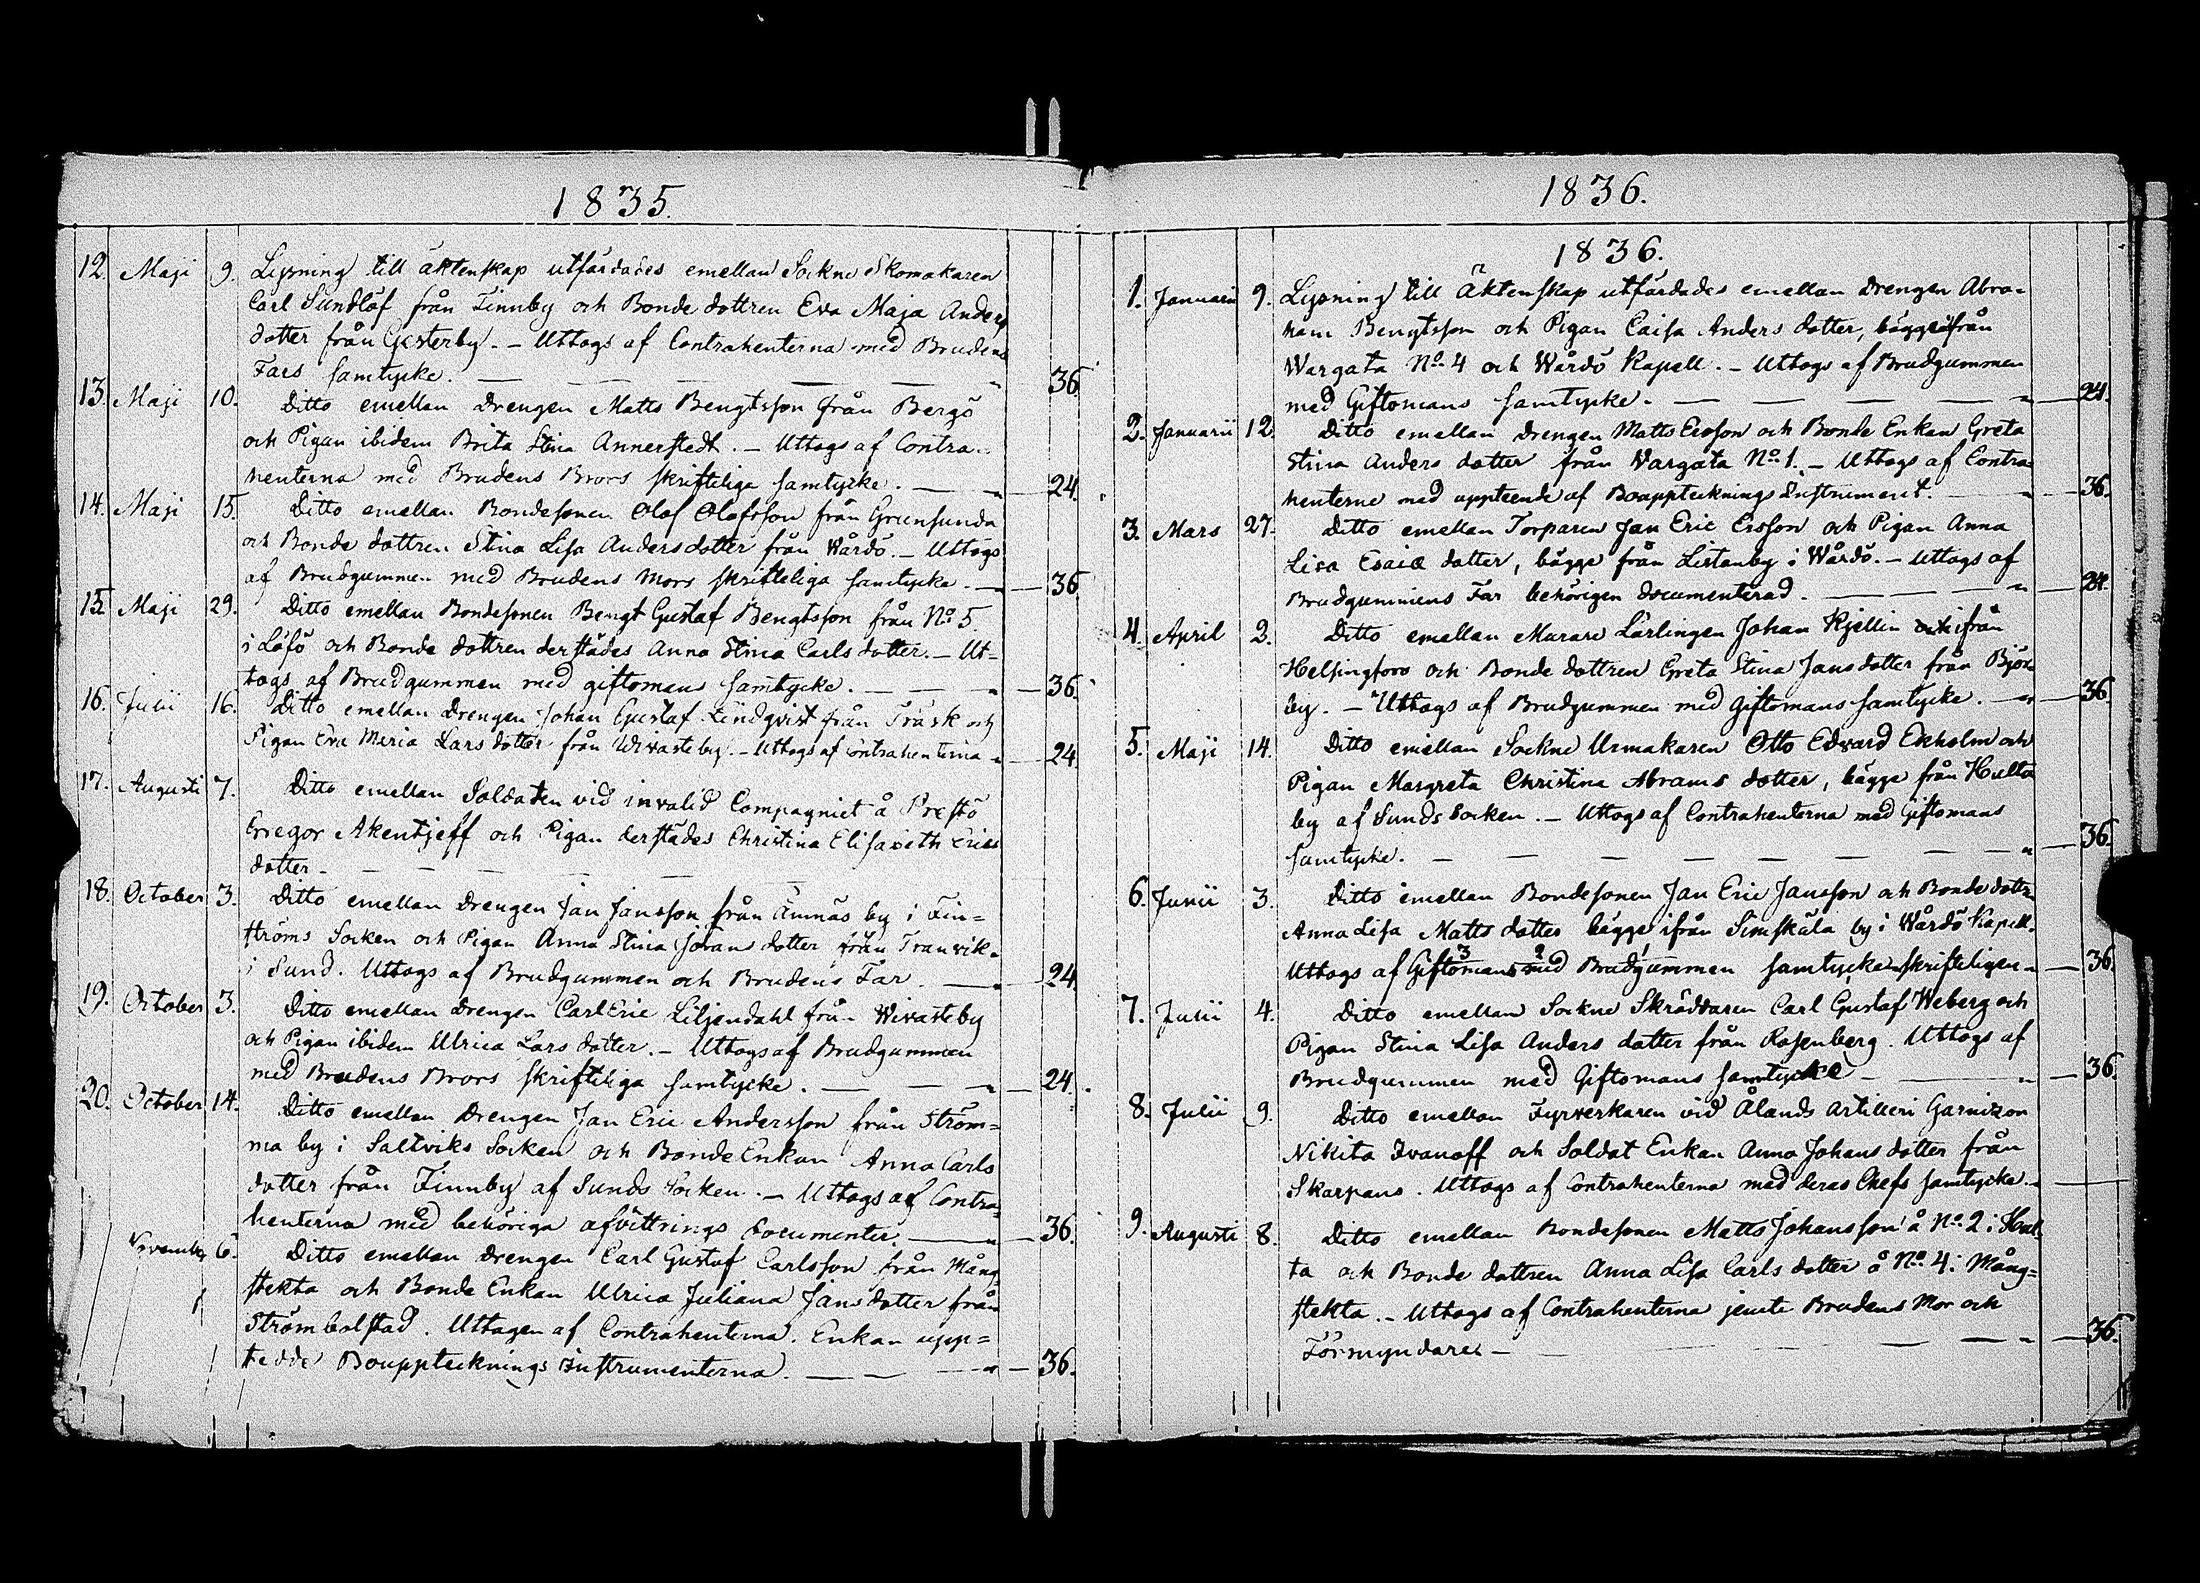 1835.
12. Maji 9. Lysning till äktenskap utfärdades emellan Sockne Skomakaren
Carl Sundlöf från Finnby och Bonde dottren Eva Maja Anders
dotter från Gesterby. — Uttogs af Contrahenterna med Brudens
Fars samtycke. — — — — 36
13. Maji 10. Ditto emellan Drengen Matts Bengtsson från Bergö
och Pigan ibidem Brita Stina Annerstedt. — Uttogs af Contra-
henterna med Brudens Brors skrifteliga samtycke. — 24.
14. Maji 15. Ditto emellan Bondesonen Olof Olofsson från Grunsunda
och Bonde dottren Stina Lisa Anders dotter från Wårdö. — Uttogs
af Brudgummen med Brudens Mors skrifteliga samtycke. — 36.
15. Maji 29. Ditto emellan Bondesonen Bengt Gustaf Bengtsson från No 5
i Löfö och Bonde dottren derstädes Anna Stina Carls dotter. — Ut-
togs af Brudgummen med giftomans samtycke. — — 36.
16. Julii 16. Ditto emellan Drengen Johan Gustaf Lindqvist från Träsk och
Pigan Eva Maria Lars dotter från Wivasteby. — Uttogs af Contrahenterna 24.
17. Augusti 7. Ditto emellan Soldaten vid invalid Compagniet å Prestö
Gregor Akentjeff och Pigan derstädes Christina Elisabeth Erics
dotter — — — —
18. October 3. Ditto emellan Drengen Jan Jansson från Ämnäs by i Fin-
ströms Socken och Pigan Anna Stina Johans dotter från Tranvik
i Sund. Uttogs af Brudgummen och Brudens Far. — 24.
19. October 3. Ditto emellan Drengen Carl Eric Liljendahl från Wivasteby
och Pigan ibidem Ulrica Lars dotter. — Uttogs af Brudgummen
med Brudens Brors skrifteliga samtycke. — — — 24.
20. October 14. Ditto emellan Drengen Jan Eric Andersson från Ström-
ma by i Saltviks Socken och Bonde Enkan Anna Carls
dotter från Finnby af Sunds Socken. — Uttogs af Contra-
henterna med behöriga afvittrings Documenter. — 36.
November 6. Ditto emellan Drengen Carl Gustaf Carlsson från Mång-
stekta och Bonde Enkan Ulrica Juliana Jans dotter från
Strömbolstad. Uttagen af Contrahenterna. Enkan upp-
tedde Bouppteknings instrumenterna. — — — 36.
1836.
1836.
1. Januarii 9. Lysning till Äktenskap utfärdades emellan Drengen Abra-
ham Bengtsson och Pigan Caisa Anders dotter, bägge ifrån
Wargata No 4 och Wårdö Kapell. — Uttogs af Brudgummen
med Giftomans samtycke. — — — — 24.
2. Januarii 12. Ditto emellan Drengen Matts Ersson och Bonde Enkan Greta
Stina Anders dotter från Vargata No 1. — Uttogs af Contra-
henterne med uppteende af Bouppteknings Instrument. — 36.
3. Mars 27. Ditto emellan Torparen Jan Eric Ersson och Pigan Anna
Lisa Esaiæ dotter, bägge från Listanby i Wårdö. — Uttogs af
Brudgummens Far behörigen documenterad. — — — 24.
4. April 2. Ditto emellan Murare Lärlingen Johan Kjellin ifrån
Helsingfors och Bonde dottren Greta Stina Jans dotter från Björ-
by. — Uttogs af Brudgummen med Giftomans samtycke. — 36.
5. Maji 14. Ditto emellan Sockne Urmakaren Otto Edvard Ekholm och
Pigan Margreta Christina Abrams dotter, bägge från Hulta
by af Sunds Socken. — Uttogs af Contrahenterna med Giftomans
samtycke. — — — — — — — 36.
6. Junii 3. Ditto emellan Bondesonen Jan Eric Jansson och Bonde dottr.
Anna Lisa Matts dotter bägge ifrån Simskäla by i Wårdö Kapell.
Uttogs af Giftomans 3 med 2 Brudgummen samtycke skrifteligen — 36.
7. Julii 4. Ditto emellan Sockne Skräddaren Carl Gustaf Weberg och
Pigan Stina Lisa Anders dotter från Rosenberg. Uttogs af
Brudgummen med Giftomans samtycke — — 36.
8. Julii 9. Ditto emellan Fyrverkaren vid Ålands Artilleri Garnizon
Nikita Ivanoff och Soldat Enkan Anna Johans dotter från
Skarpans. Uttogs af Contrahenterna med deras Chefs samtycke. —
9. Augusti 8. Ditto emellan Bondesonen Matts Johansson å No 2 i Hul
ta och Bonde dottren Anna Lisa Carls dotter å No 4 i Mång-
stekta. — Uttogs af Contrahenterna jemte Brudens Mor och
Förmyndare. — — — — — 36.